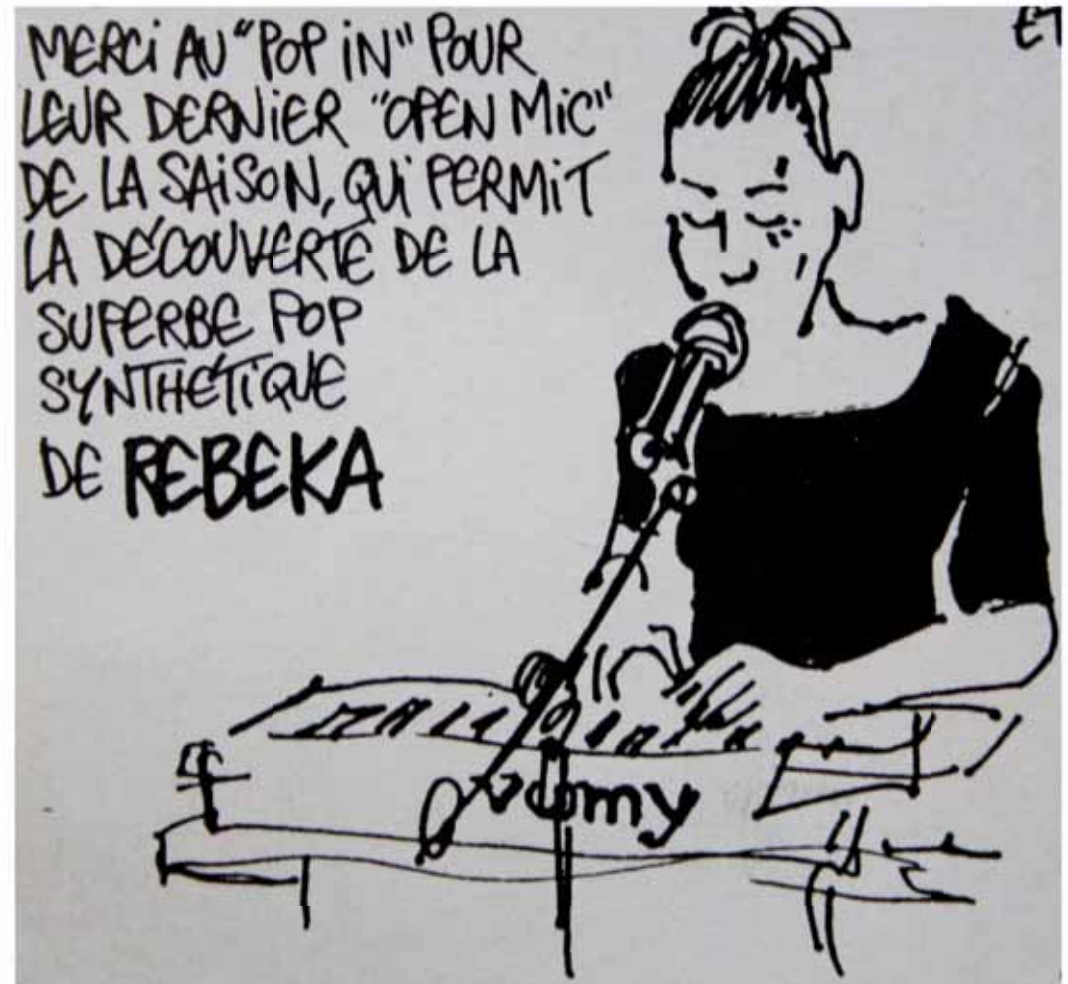 MERCi AU "POP iN" POUR
LEUR DERNiER "OPEN MiC"
DE LA SAiSON, QUi PERMiT
LA DÉCOUVERTE DE LA
SUPERBE POP
SYNTHÉTiQUE
DE REBEKA
ET